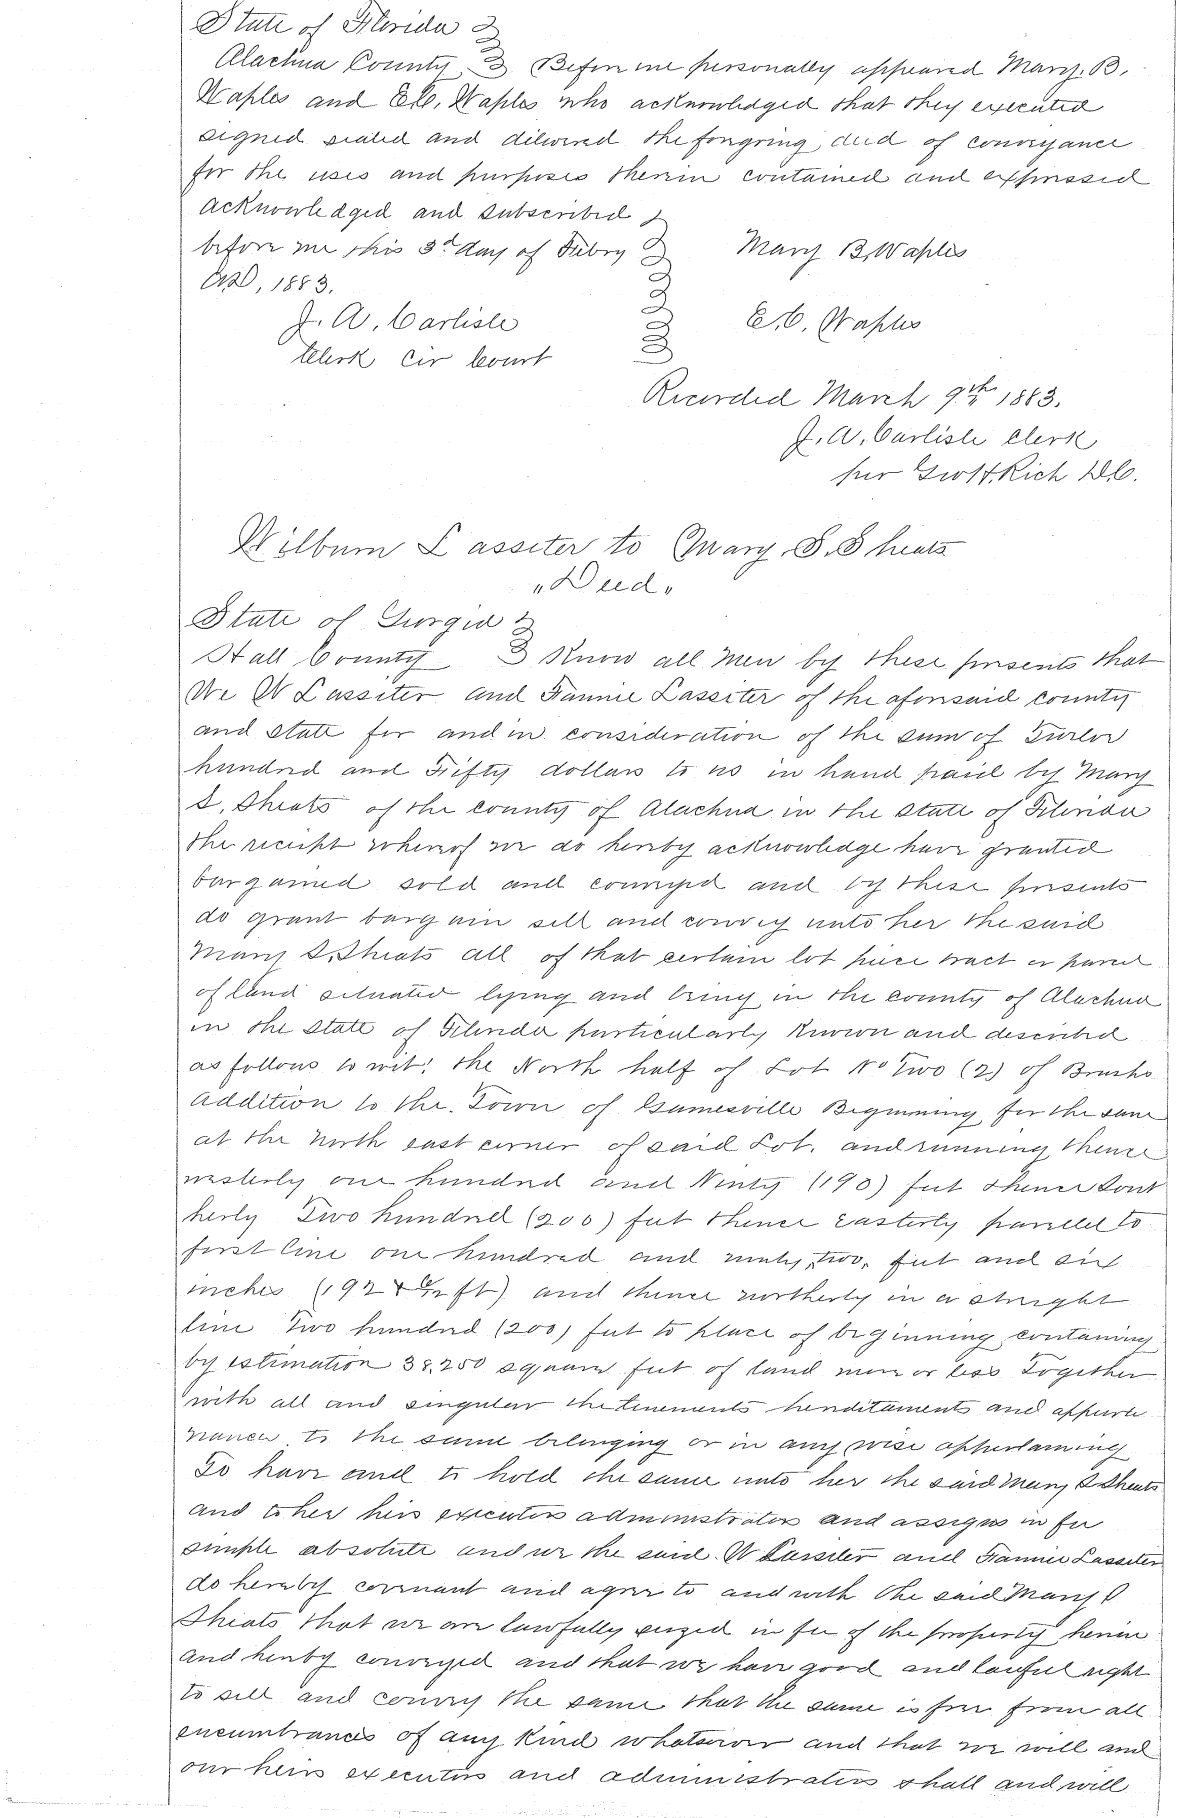 State of Florida
Alachua County Before me personally appeared Mary. B.
Waples and E.C. Waples who acknowledged that they executed
signed sealed and delivered the foregoing deed of conveyance
for the uses and purposes therein contained and expressed
acknowledged and subscribed
before me this 3d day of Febry Mary B. Waples
AD, 1883.
J. A. Carlisle E.C. Waples
Clerk Cir Court
Recorded March 9th 1883.
J. A. Carlisle Clerk
per Rich D.C.
Wilburn Lassiter to Mary S. Sheats
"Deed"
State of Georgia
Hall County Know all men by these presents that
We W Lassiter and Fannie Lassiter of the aforesaid county
and state for and in consideration of the sum of
hundred and Fifty dollars to us in hand paid by Mary
S. Sheats of the county of Alachua in the state of Florida
the receipt whereof we do hereby acknowledge have granted
bargained sold and conveyed and by these presents
do grant bargain sell and convey unto her the said
Mary S. Sheats all of that certain lot piece tract or parcel
of land situated lying and being in the county of Alachua
in the state of Florida particularly known and described
as follows to wit: the North half of Lot No Two (2) of Brushs
addition to the Town of Gainesville Beginning for the same
at the north east corner of said Lot. and running thence
westerly one hundred and Ninty (190) feet thence Sout
herly Two hundred (200) feet thence easterly parallel to
first line one hundred and ninty, two, feet and six
inches (192 & 6/12 ft) and thence northerly in a streight
line Two hundred (200) feet to place of beginning containing
by estimation 38,250 square feet of land more or less Together
with all and singular the tenements hereditaments and appurte
nances to the same belonging or in any wise appertaining
To have and to hold the same unto her the said Mary S Sheats
and to her heirs executors administrators and assigns in fee
simple absolute and we the said W Lassiter and Fannie Lassiter
do hereby covenant and agree to and with the said Mary S
Sheats that we are lawfully seized in fee of the property herein
and hereby conveyed and that we have good and lawful right
to sell and convey the same that the same is free from all
encumbrances of any kind whatsoever and that we will and
our heirs executors and administrators shall and will